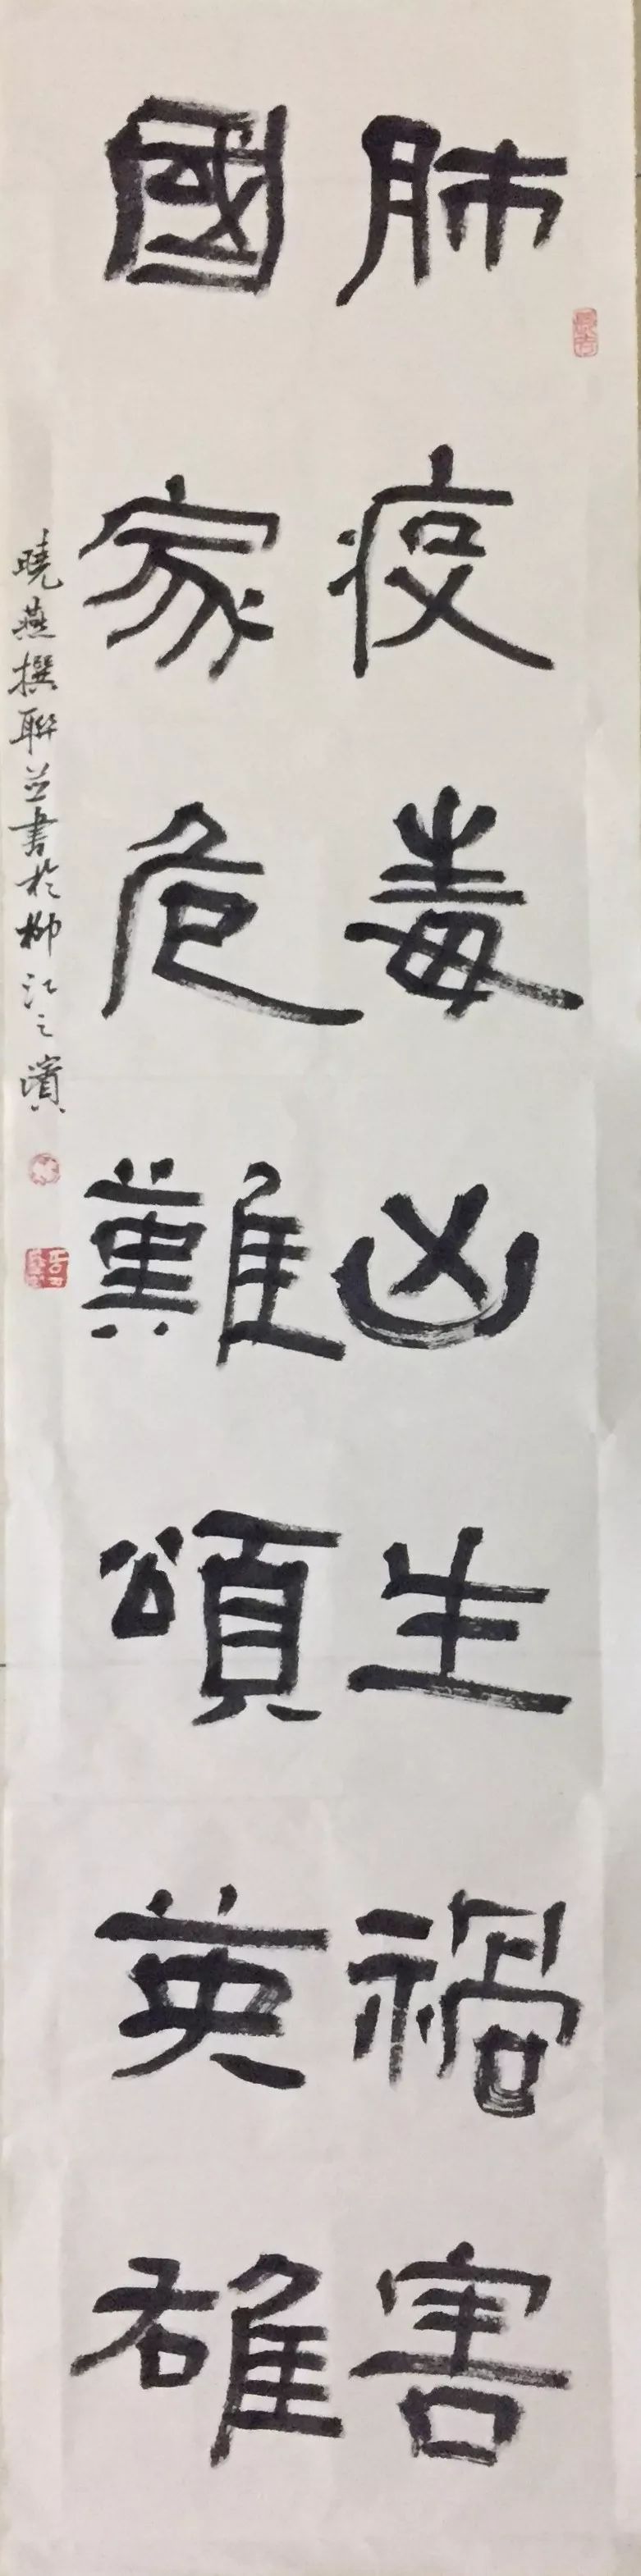 肺疫毒凶生禍害
國家危難頌英雄
曉燕撰聯並書於柳江之濱